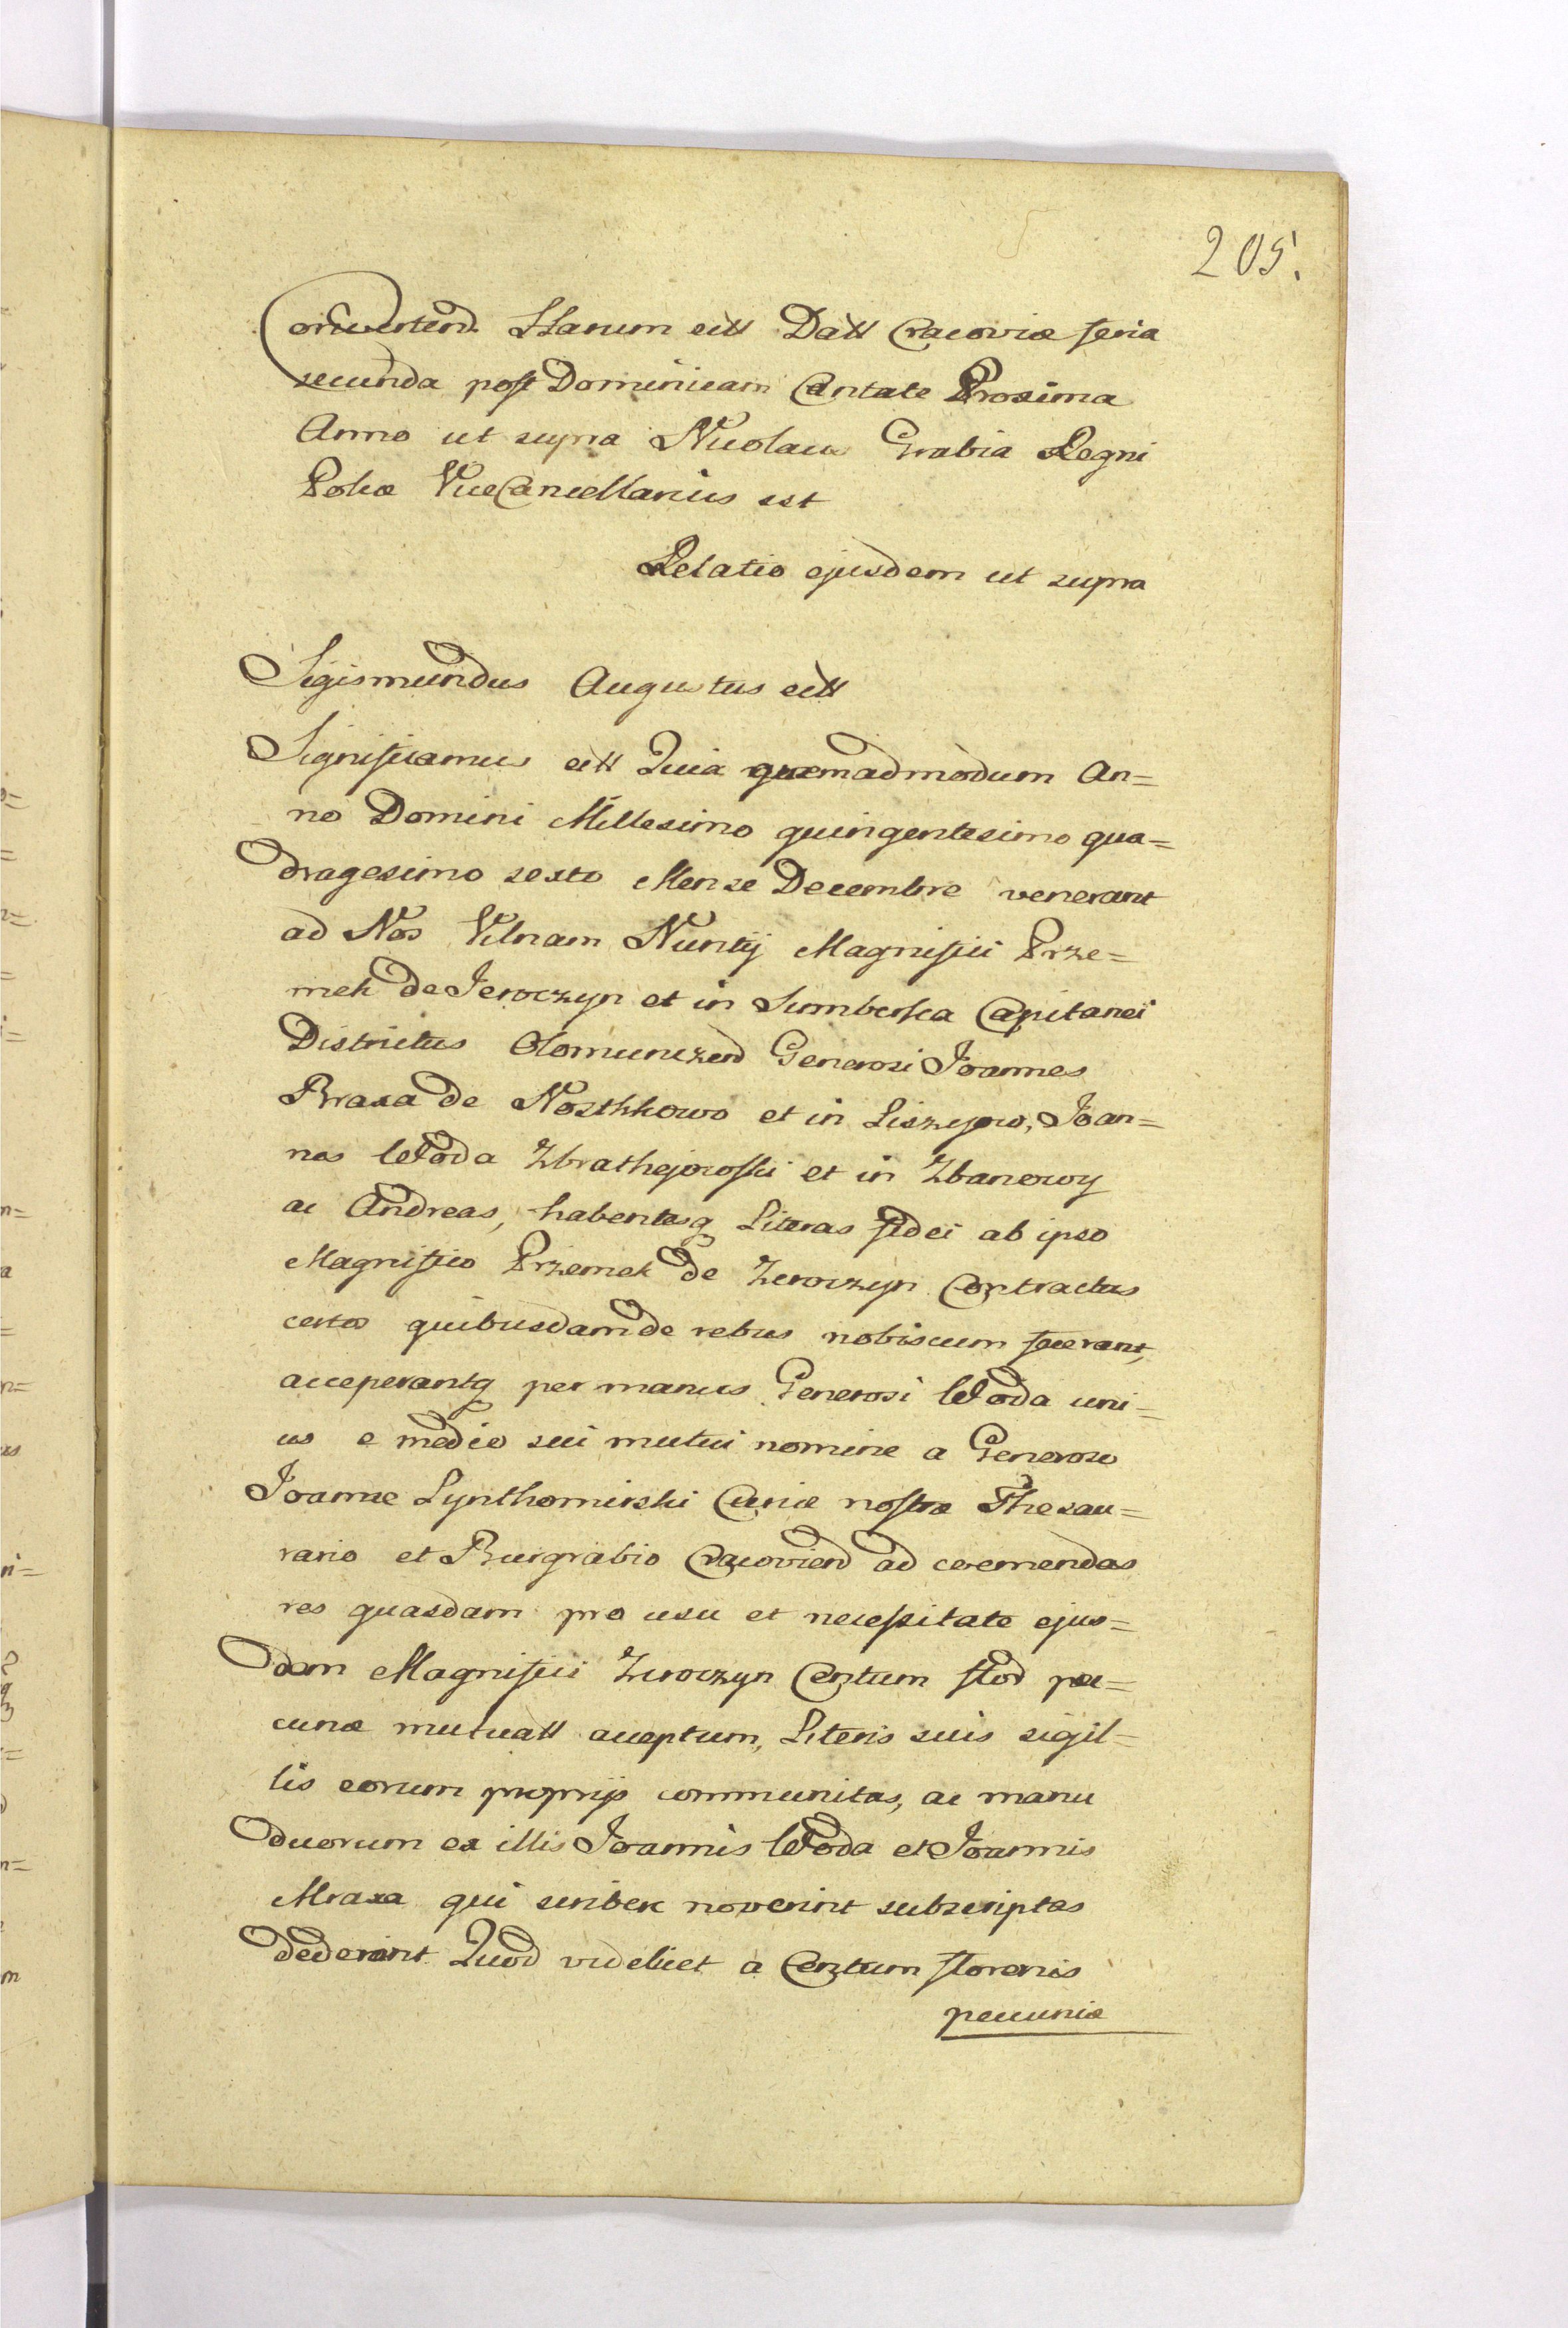 205.
Convertend Harum ett Datt Cracoviæ feria
secunda post Dominicam Cantate Proxima
Anno ut supra Nicolaus Grabia Regni
Poliæ ViceCancellarius sst
Relatio ejusdem ut supra
Sigismundus Augustus ett
Significamus ett Quia quemadmodum An=
no Domini Millesimo quingentesimo qua=
dragesimo sexto Mense Decembre venerant
ad Nos Vilnam Nuntij Magnifici Prze=
mek de Jeroczyn et in Sumberka Capitanei
Districtus Olomunczend Generosi Joannes
Braxa de Nosthkowo et in Liszejowo, Joan=
nes Woda Zbrathejowski et in Zbanowy
ac Andreas, habentesq Literas fidei ab ipso
Magnifico Przemek de Zeroczyn Contractus
certos quibusdam de rebus nobiscum fecerant,
acceperantq per manus Generosi Woda uni=
us e medio sui mutui nomine a Generoso
Joanne Lynthomirski Curiæ nostræ Thesau=
rario et Burgrabio Cracoviend ad coemendas
res quasdam pro usu et necessitate ejus=
dem Magnifici Zeroczyn Centum flod pe=
cuniæ mutuatt acceptum, Literis suis sigil=
lis eorum proprijs communitas, ac manu
duorum ex illis Joannis Woda et Joannis
Mraxa qui scribere noverint subscriptas
dederint Quod videlicet a Centum florenis
pecuniæ